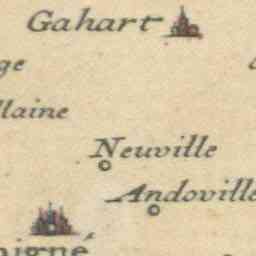 Gahart
ge
llaine
Neuville
Andoville
pigné